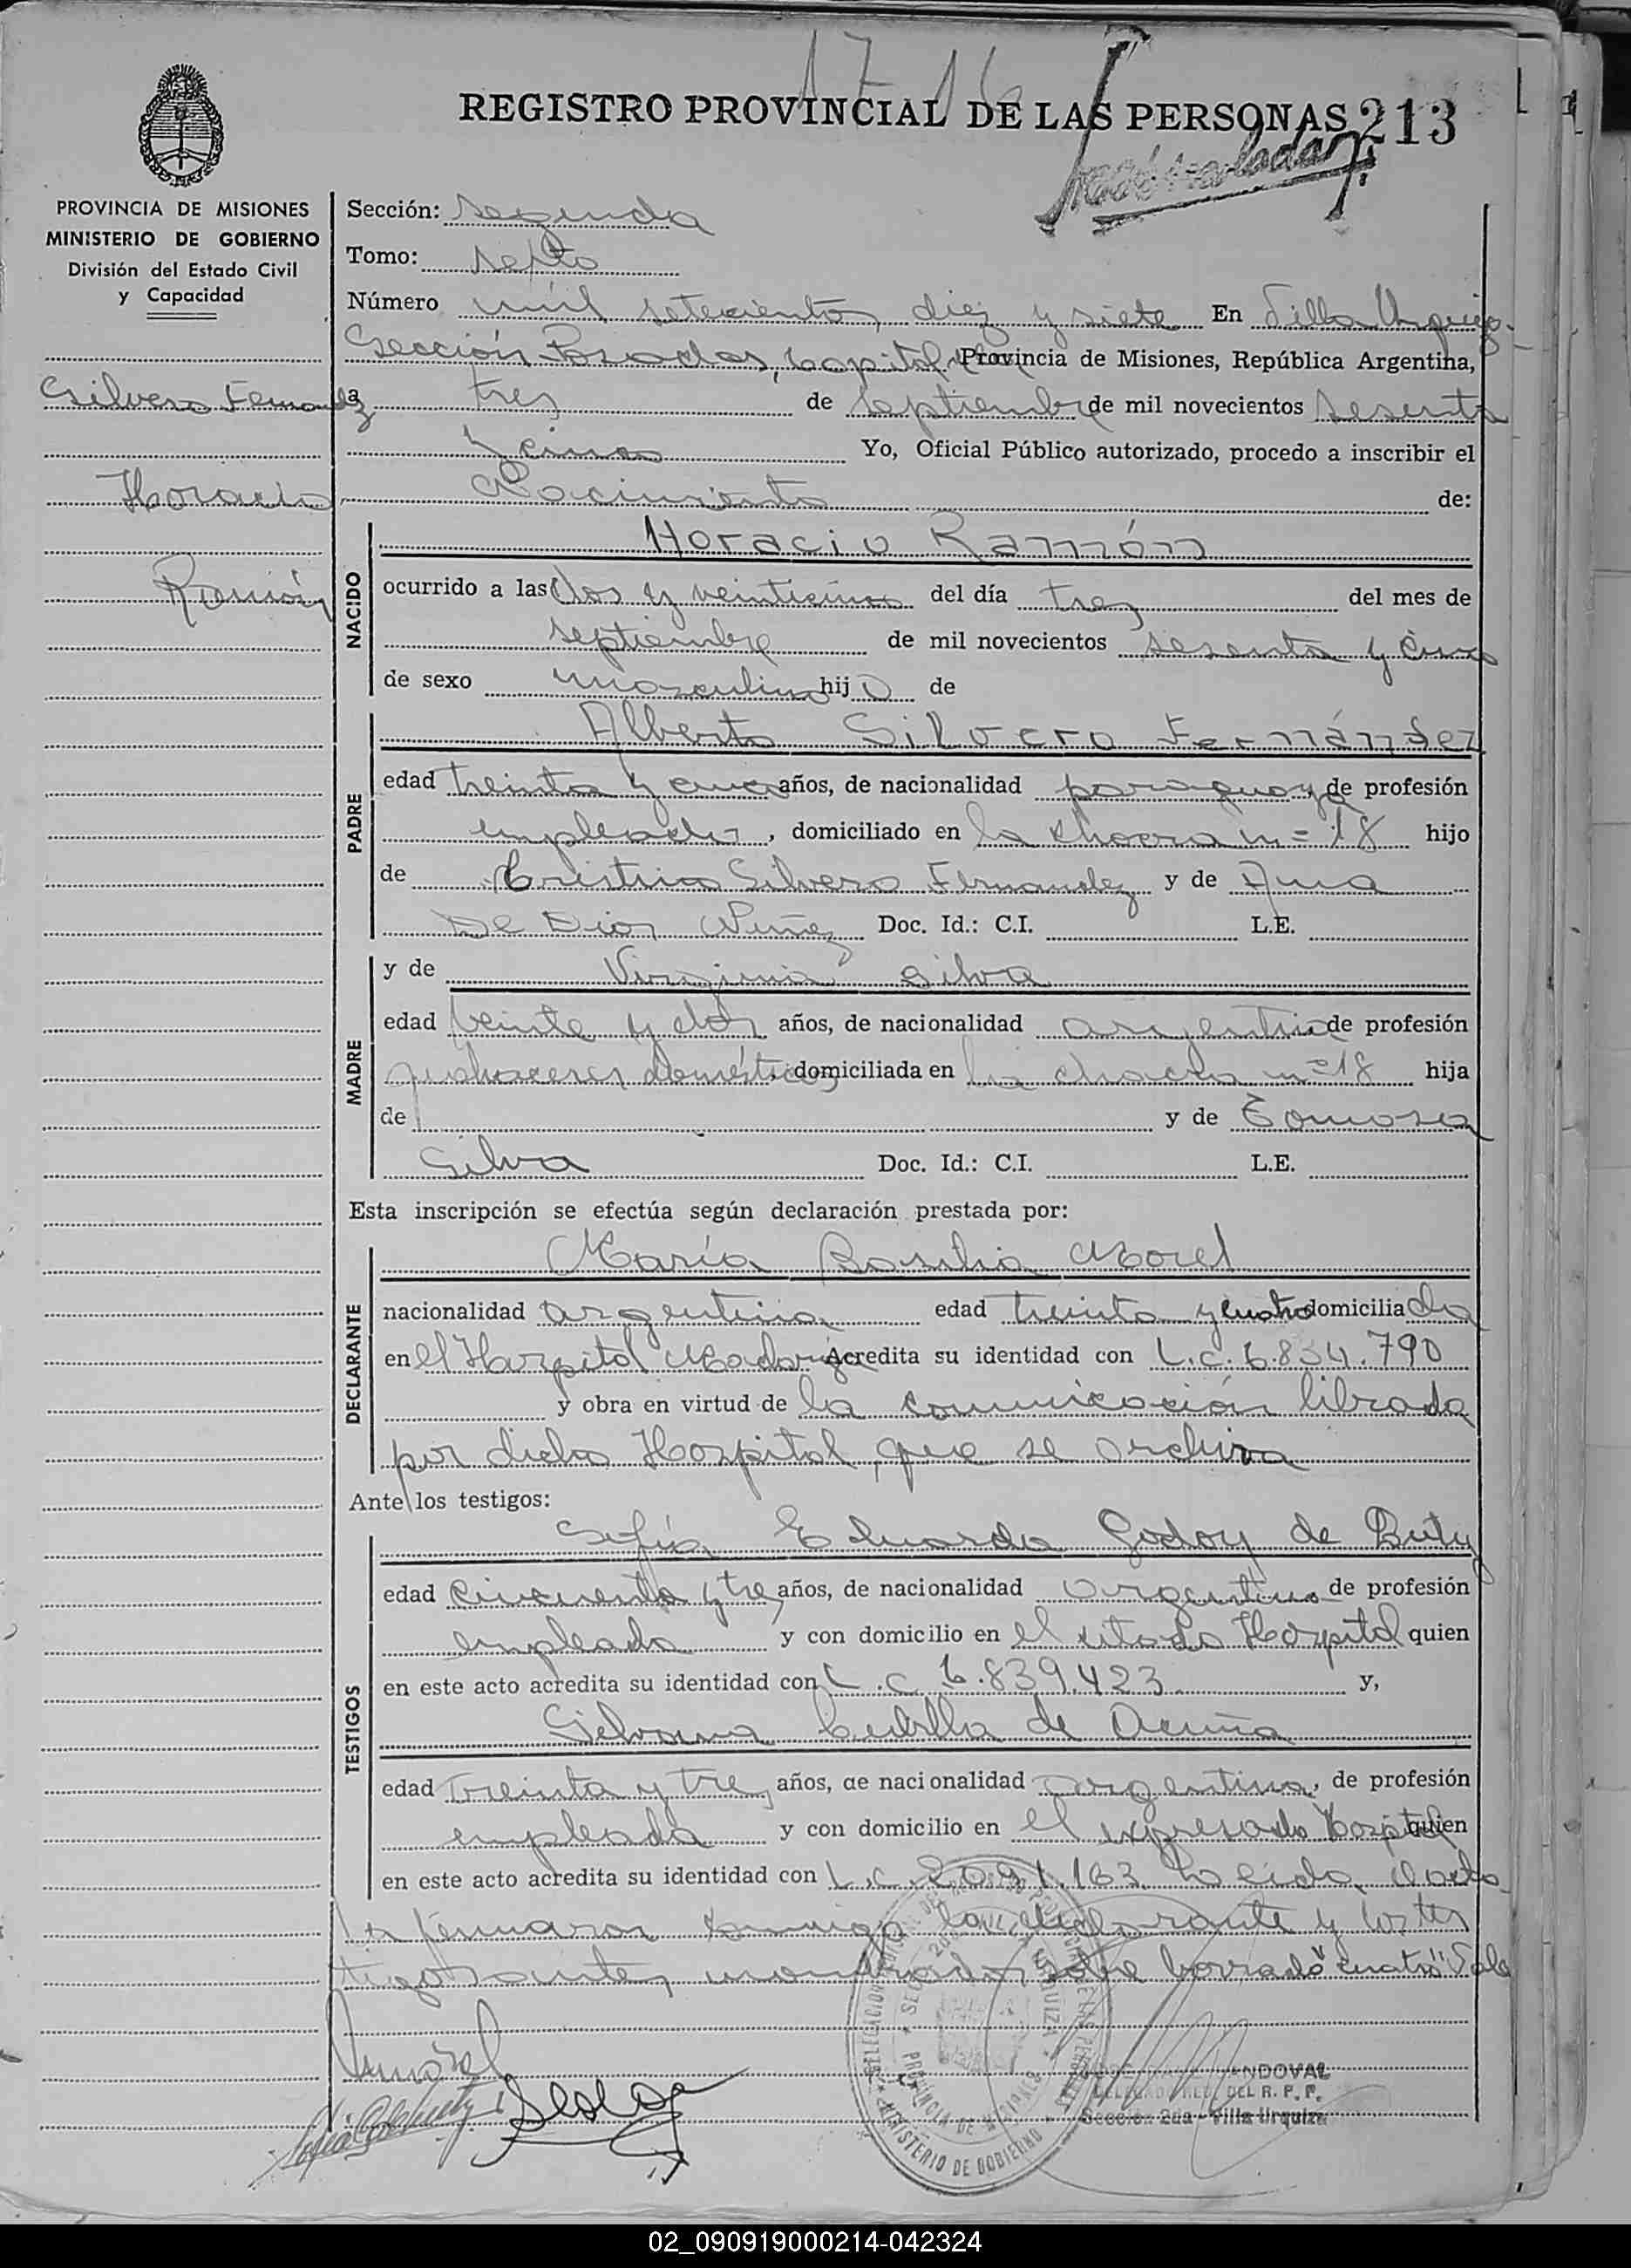 17 16
REGISTRO PROVINCIAL DE LAS PERSONAS 213
PROVINCIA DE MISIONES
MINISTERIO DE GOBIERNO
División del Estado Civil
y Capacidad
Silvero Fernandez
Horacio
Ramón
Sección: Segunda
Tomo: septo
Número mil setecientos diez y siete En Villa Urquiza
Sección Posadas, Capital Provincia de Misiones, República Argentina,
a tres de septiembre de mil novecientos sesenta
y cinco Yo, Oficial Público autorizado, procedo a inscribir el
Nacimiento de:
NACIDO
Horacio Ramón
ocurrido a las dos y veinticinco del día tres del mes de
septiembre de mil novecientos sesenta y cinco
de sexo masculino hijo de
PADRE
Alberto Silvero Fernández
edad treinta y años, de nacionalidad paraguaya de profesión
empleado, domiciliado en la chacra n=18 hijo
de Cristino Silvero Fernandez y de Ana
De Dios Nuñez Doc. Id.: C.I. L.E.
MADRE
y de Virginia Silva
edad veinte y dos años, de nacionalidad argentina de profesión
quehaceres domésticos, domiciliada en la chacra n=18 hija
de y de Tomasa
Silva Doc. Id.: C.I. L.E.
Esta inscripción se efectúa según declaración prestada por:
DECLARANTE
María Basilia Morel
nacionalidad argentina edad treinta y cuatro domiciliada
en el Hospital Madariaga Acredita su identidad con L.C. 6.834.790
y obra en virtud de la comunicación librada
por dicho Hospital, que se archiva
Ante los testigos:
TESTIGOS
Sofía Eduarda Godoy de
edad cincuenta y tres años, de nacionalidad argentina de profesión
empleada y con domicilio en el citado Hospital quien
en este acto acredita su identidad con L.C 6.839.423 y,
Cubilla de Acuña
edad treinta y tres años, de nacionalidad argentina, de profesión
empleada y con domicilio en el expresado Hospital quien
en este acto acredita su identidad con L.C. 2.091.163 Leída el acta
la firmaron conmigo la declarante y los tes
tigos antes nombrados sobre borrado "cuatro" Vale
SANDOVAL
DEL R. P. P.
Sección 2da - Villa Urquiza
PROVINCIA DE MISIONES
MINISTERIO DE GOBIERNO
02_090919000214-042324